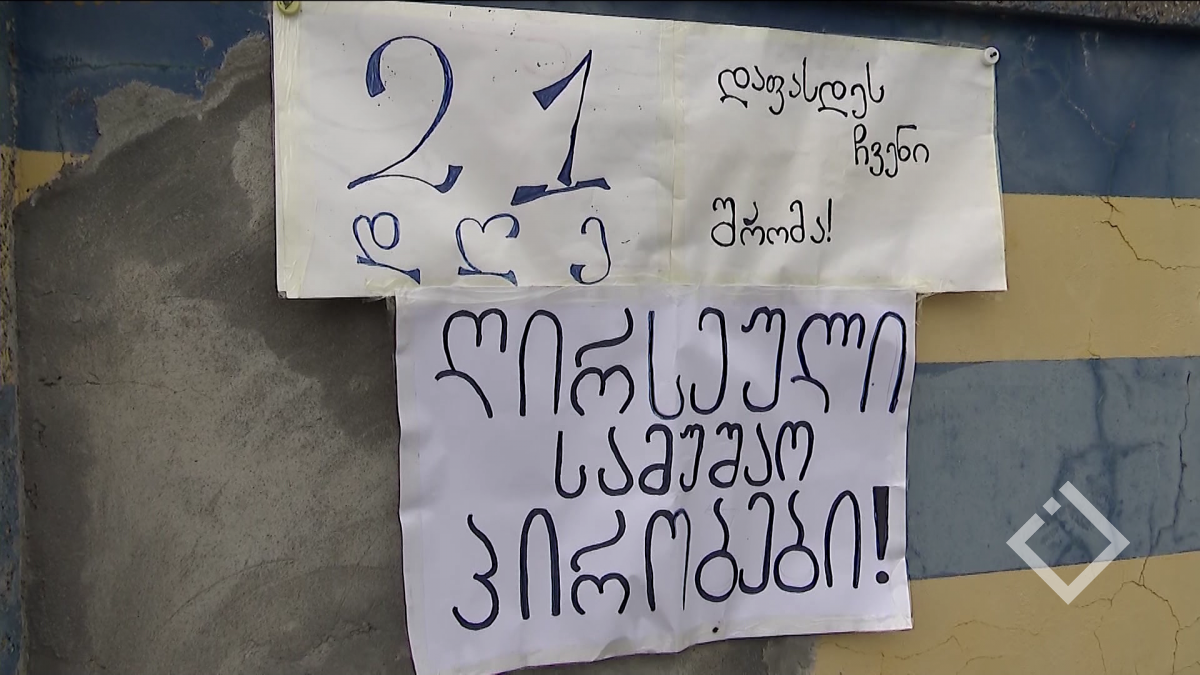 21
დღე
დაფასდეს
ჩვენი
შრომა!
ღირსეული
სამუშაო
პირობები!